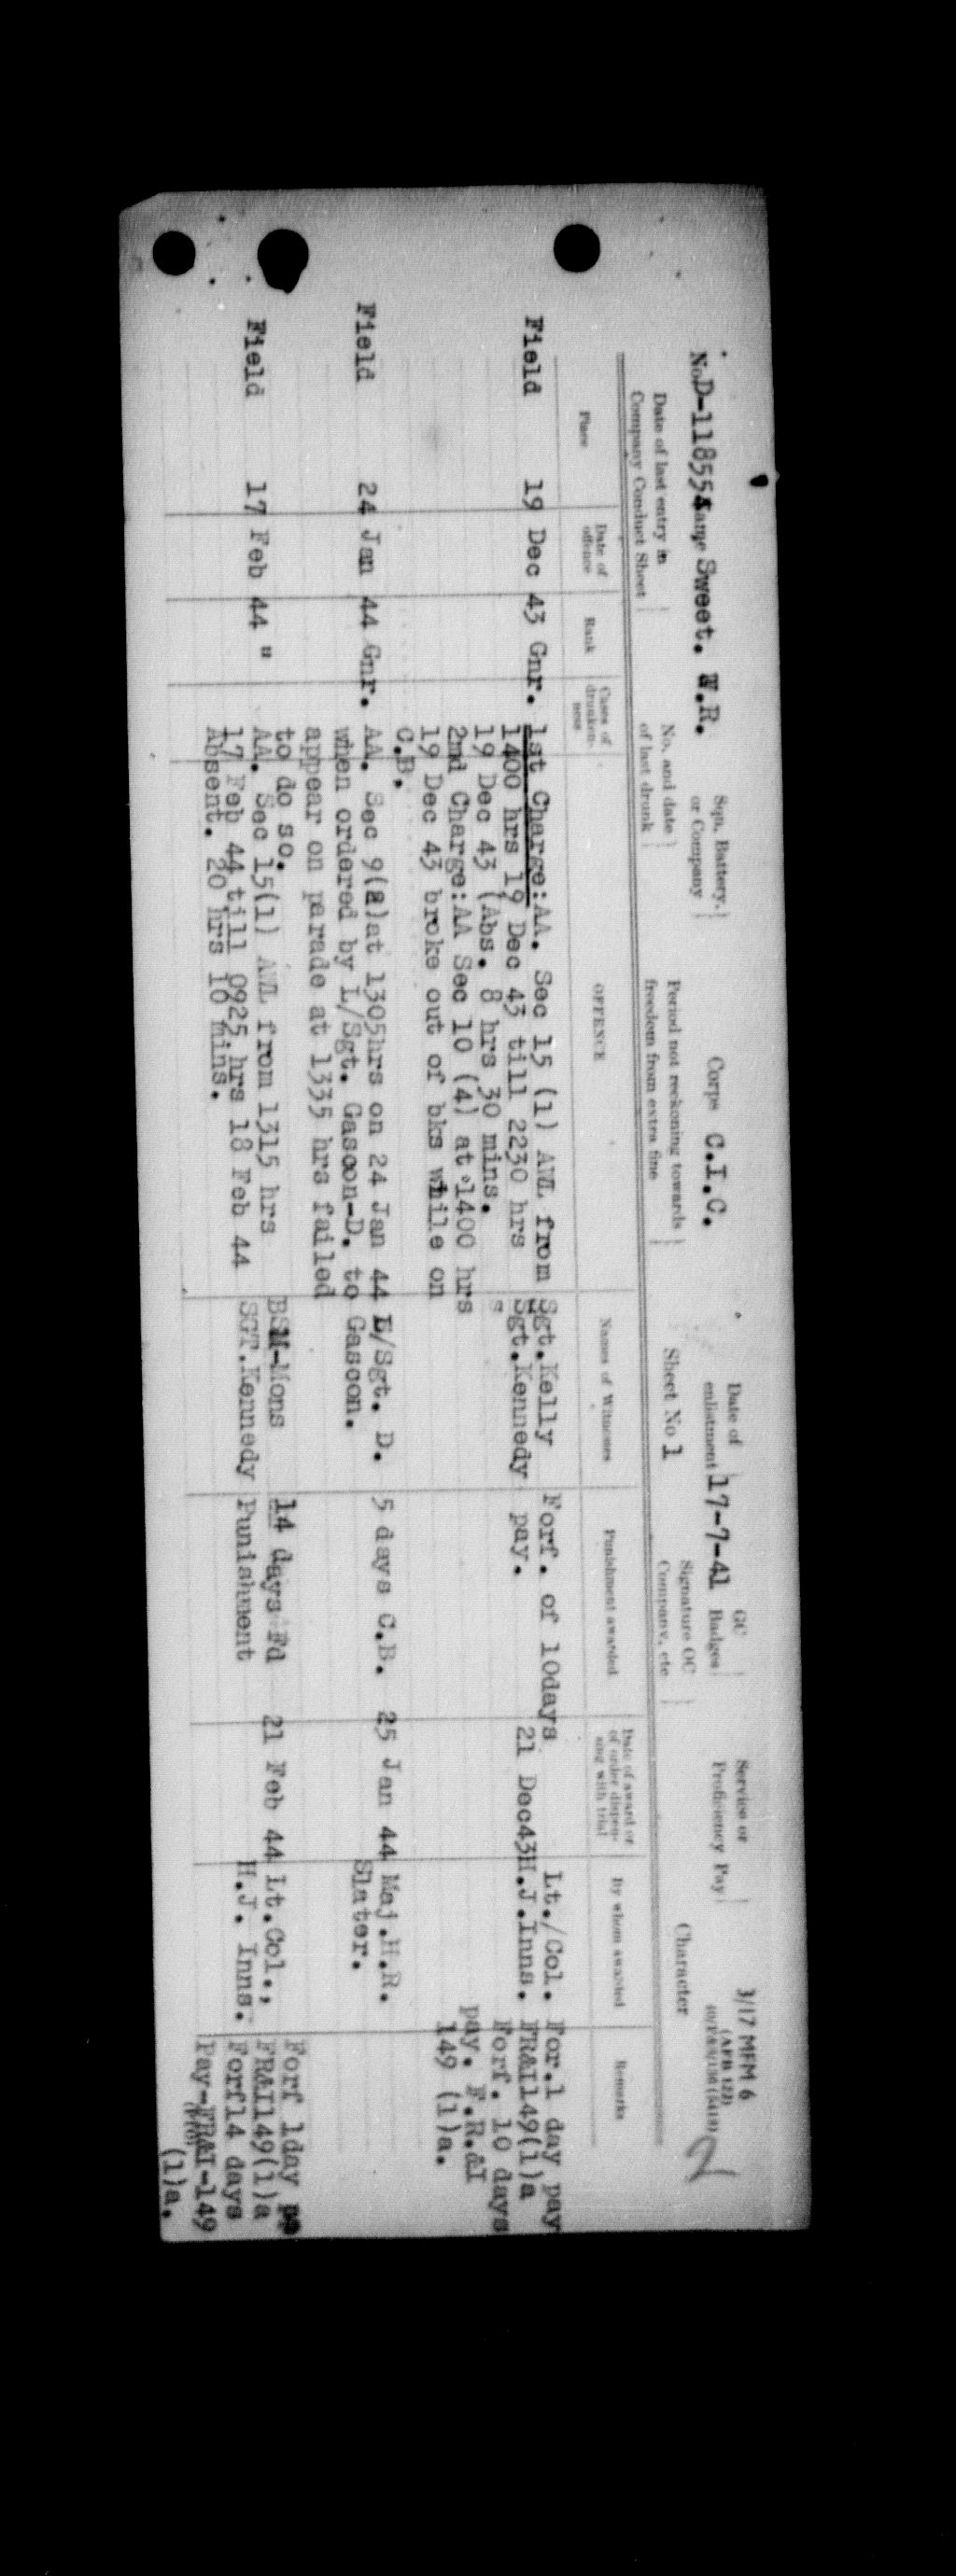 3/17 MFM 6
(AFB 122)
2
No. D-118554 Name Sweet. W.R.
Sqn. Battery, or Company
Corps C.I.C.
Date of enlistment 17-7-41
GC Badges
Service or Proficiency Pay
Date of last entry in Company Conduct Sheet
No. and date of last drunk
Period not reckoning towards freedom from extra fine
Sheet No 1
Signature OC Company, etc
Character
Place
Date of offence
Rank
Cases of drunken-ness
OFFENCE
Names of Witnesses
Punishment awarded
Date of award or of order dispen-sing with trial
By whom awarded
Remarks
Field 19 Dec 43 Gnr.
1st Charge:AA. Sec 15 (1) AWL from
1400 hrs 19 Dec 43 till 2230 hrs
19 Dec 43 (Abs. 8 hrs 30 mins.
2nd Charge:AA Sec 10 (4) at 1400 hrs
19 Dec 43 broke out of bks while on
C.B.
Sgt.Kelly
Sgt.Kennedy
s
Forf. of 10days
pay.
21 Dec43
Lt./Col.
H.J.Inns.
For.1 day pay
FR&I149(1)a
Forf. 10 days
pay. F.R.&I
149 (1)a.
Field 24 Jan 44 Gnr.
AA. Sec 9(2)at 1305hrs on 24 Jan 44
when ordered by L/Sgt. Gascon-D. to
appear on parade at 1335 hrs failed
to do so.
L/Sgt. D.
Gascon.
5 days C.B.
25 Jan 44
Maj.H.R.
Slater.
Field 17 Feb 44 "
AA. Sec 15(1) AWL from 1315 hrs
17 Feb 44 till 0925 hrs 18 Feb 44
Absent. 20 hrs 10 mins.
BSM-Mons
SGT.Kennedy
14 days Fd
Punishment
21 Feb 44
Lt.Col.,
H.J. Inns.
Forf 1day
FR&I149(1)a
Forf14 days
Pay-FR&I-149
(1)a.